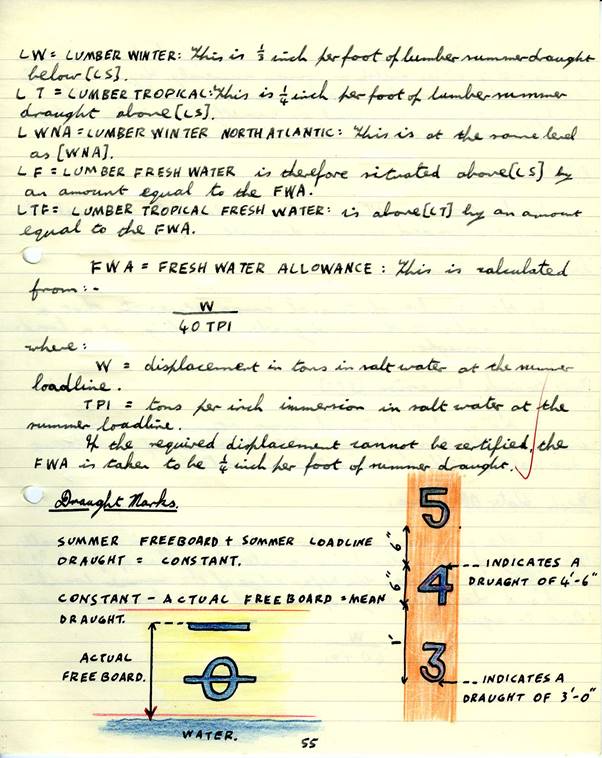 LW = LUMBER WINTER: This is 1/3 inch per foot of lumber summer draught
below [LS].
LT = LUMBER TROPICAL: This is 1/4 inch per foot of lumber summer
draught above [LS].
LWNA = LUMBER WINTER NORTH ATLANTIC: This is at the same level
as [WNA].
LF = LUMBER FRESH WATER is therefore situated above [LS] by
an amount equal to the FWA.
LTF = LUMBER TROPICAL FRESH WATER: is above [LT] by an amount
equal to the FWA.
FWA = FRESH WATER ALLOWANCE: This is calculated
from:-
W
40 TPI
where:
W = displacement in tons in salt water at the summer
loadline.
TPI = tons per inch immersion in salt water at the
summer loadline.
If the required displacement cannot be certified, the
FWA is taken to be 1/4 inch per foot of summer draught.
Draught Marks.
SUMMER FREEBOARD + SUMMER LOADLINE
DRAUGHT = CONSTANT.
CONSTANT - ACTUAL FREEBOARD = MEAN
DRAUGHT.
ACTUAL
FREEBOARD.
WATER.
5
6"
4
6"
INDICATES A
DRUAGHT OF 4'-6"
1'
3
INDICATES A
DRAUGHT OF 3'-0"
55